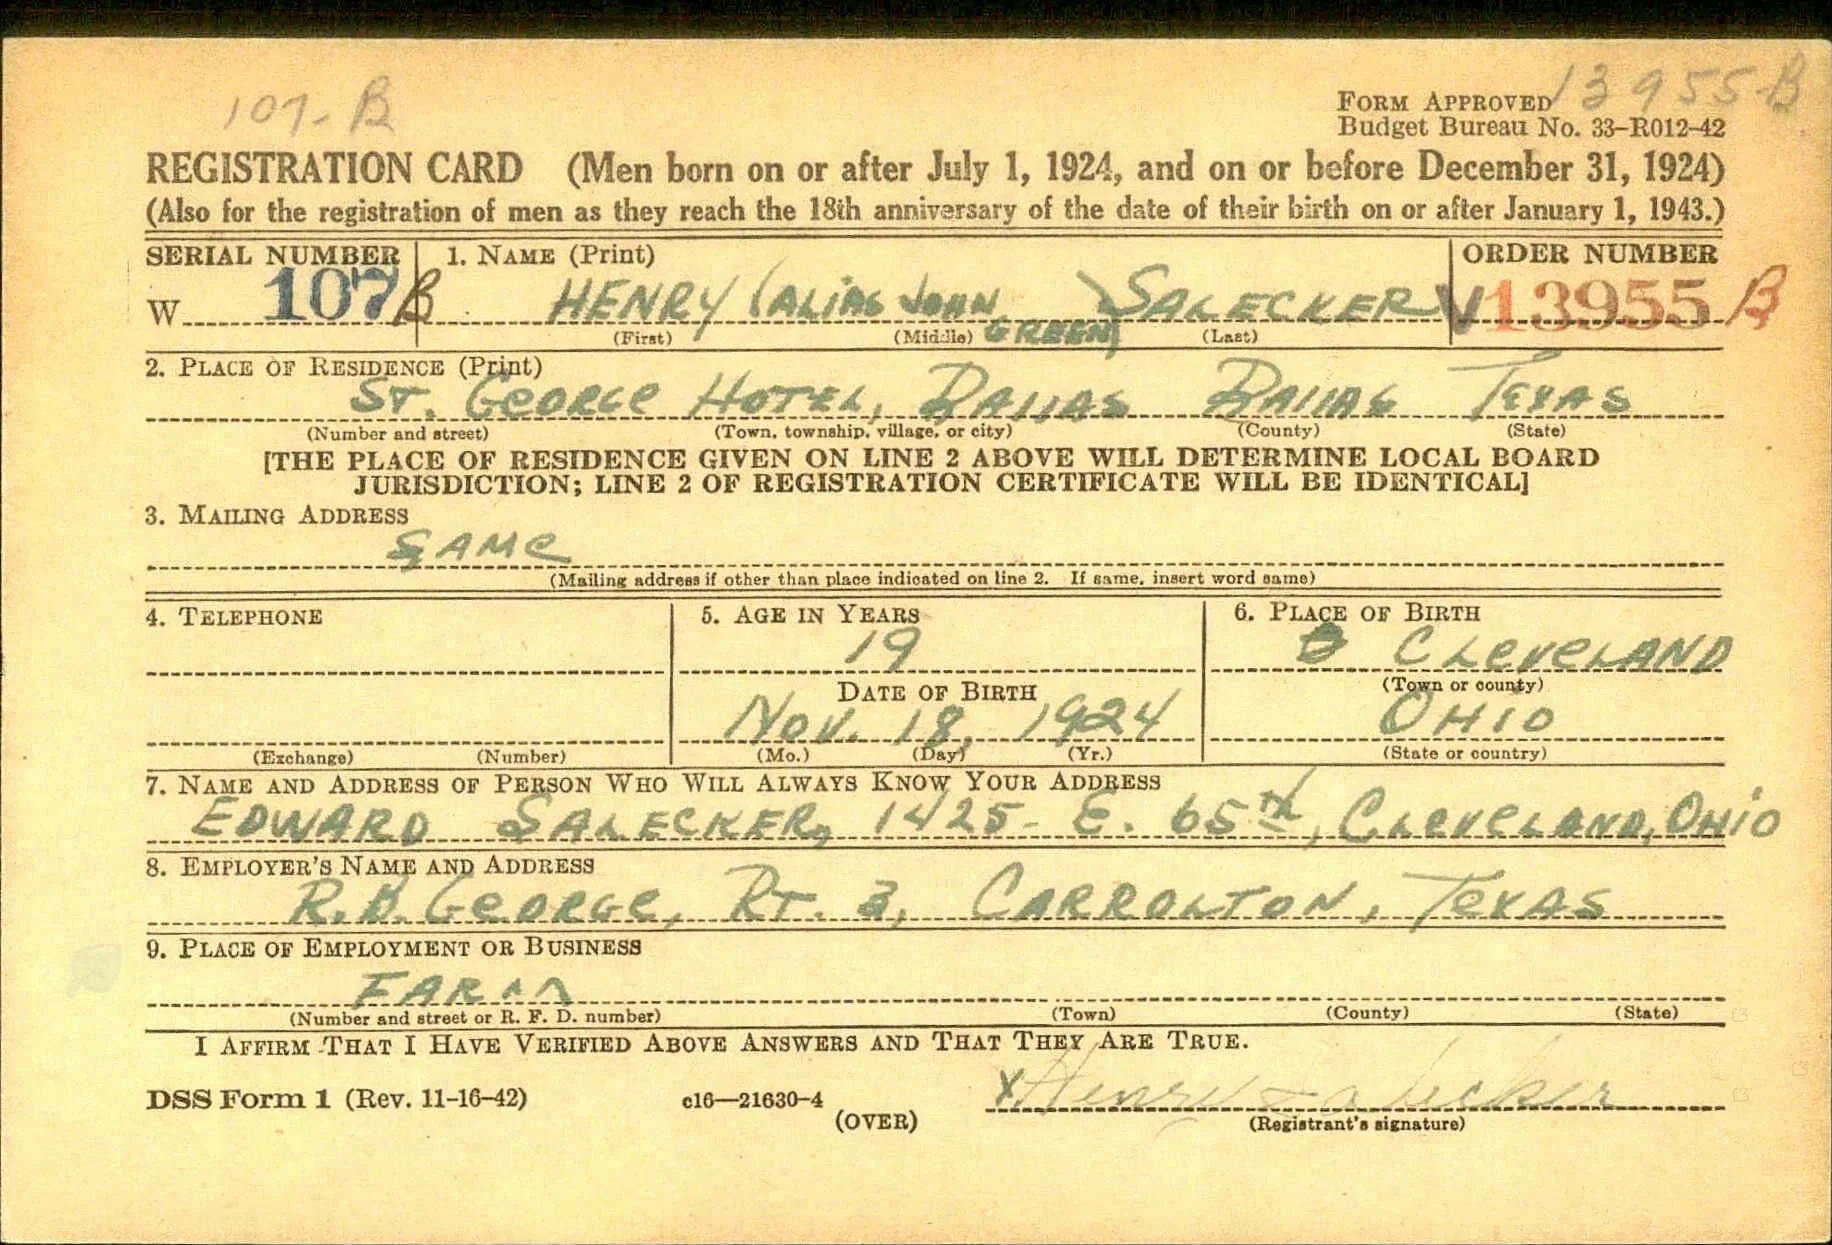 107-B
13955-B
FORM APPROVED
Budget Bureau No. 33-R012-42
REGISTRATION CARD (Men born on or after July 1, 1924, and on or before December 31, 1924)
(Also for the registration of men as they reach the 18th anniversary of the date of their birth on or after January 1, 1943.)
SERIAL NUMBER 1. NAME (Print) ORDER NUMBER
W 107 B HENRY (ALIAS JOHN GREEN) SALECKER V 13955 B
(First) (Middle) (Last)
2. PLACE OF RESIDENCE (Print)
ST. GEORGE HOTEL, DALLAS DALLAS TEXAS
(Number and street) (Town, township, village, or city) (County) (State)
[THE PLACE OF RESIDENCE GIVEN ON LINE 2 ABOVE WILL DETERMINE LOCAL BOARD
JURISDICTION; LINE 2 OF REGISTRATION CERTIFICATE WILL BE IDENTICAL]
3. MAILING ADDRESS
SAME
(Mailing address if other than place indicated on line 2. If same, insert word same)
4. TELEPHONE 5. AGE IN YEARS 6. PLACE OF BIRTH
19 CLEVELAND
DATE OF BIRTH (Town or county)
NOV. 18, 1924 OHIO
(Exchange) (Number) (Mo.) (Day) (Yr.) (State or country)
7. NAME AND ADDRESS OF PERSON WHO WILL ALWAYS KNOW YOUR ADDRESS
EDWARD SALECKER, 1425- E. 65th, CLEVELAND, OHIO
8. EMPLOYER'S NAME AND ADDRESS
R.B. GEORGE, RT. 3, CARROLTON, TEXAS
9. PLACE OF EMPLOYMENT OR BUSINESS
FARM
(Number and street or R. F. D. number) (Town) (County) (State)
I AFFIRM THAT I HAVE VERIFIED ABOVE ANSWERS AND THAT THEY ARE TRUE.
DSS Form 1 (Rev. 11-16-42) c16—21630-4 X Henry Salecker
(OVER) (Registrant's signature)